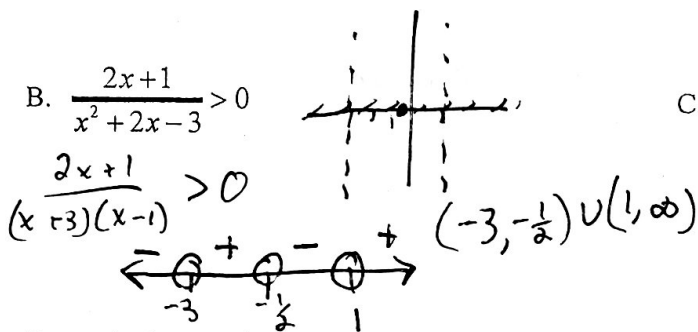 B. (2x+1)/(x²+2x−3) > 0
C
(2x+1)/((x+3)(x−1)) > 0
(-3, -1/2) ∪ (1, ∞)
− + − +
-3 -1/2 1